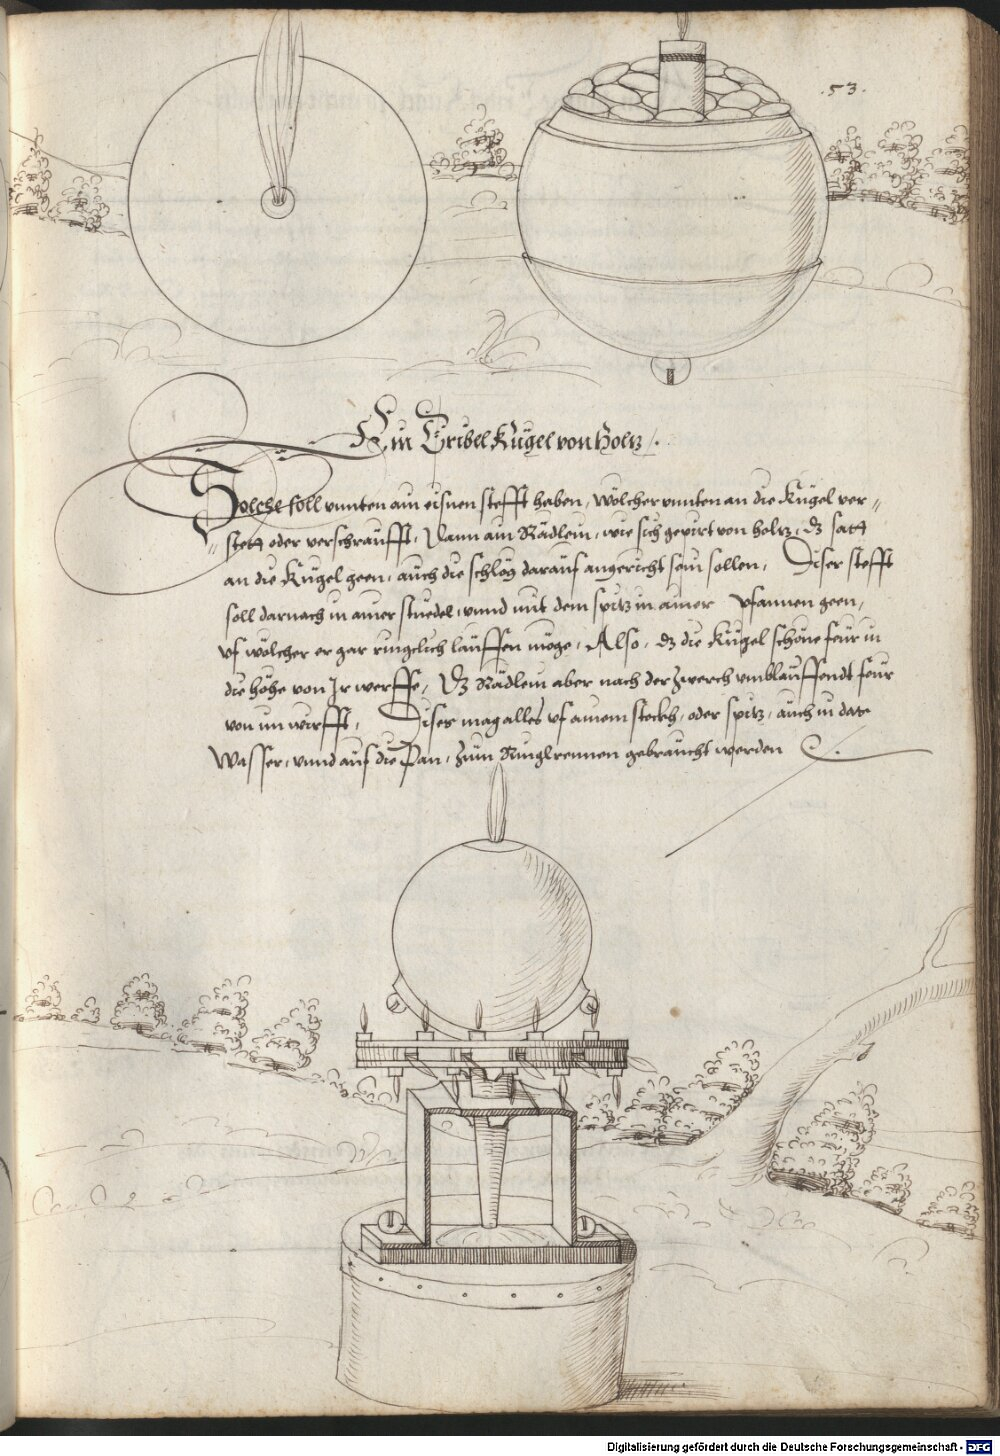 .53.
Ein Tribel Kugel von Holtz /.
Solche soll vnnten ain eisnen stefft haben, wölcher vnnten an die Kugel ver-
stett oder verschraufft, Dann ain Rädlein, wie sich gepirt von holtz, dz satt
an die Kugel geen, auch die schleg darauf angericht sein sollen, Diser stefft
soll darnach in ainer studel, vnnd mit dem spitz in ainer pfannen geen,
vf wölcher er gar ringclich lauffen möge, Also, dz die Kugel schöne feur in
die höhe von Ir werffe, Dz Rädlein aber nach der zwerch vmblauffendt feur
von im wirfft, Dises mag alles vf ainem steckh, oder spitz, auch in das
Wasser, vnnd auf die Pan, zum Ringlrennen gebraucht werden
Digitalisierung gefördert durch die Deutsche Forschungsgemeinschaft - DFG